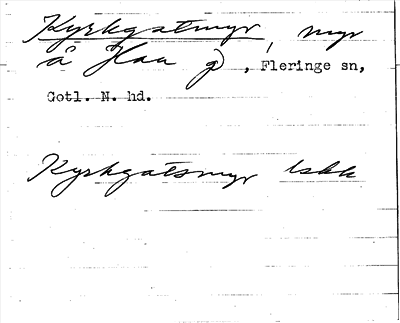 Kyrkgatmyr, myr
å Haa g), Fleringe sn,
Gotl. N. hd.
Kyrkgatsmyr lskk